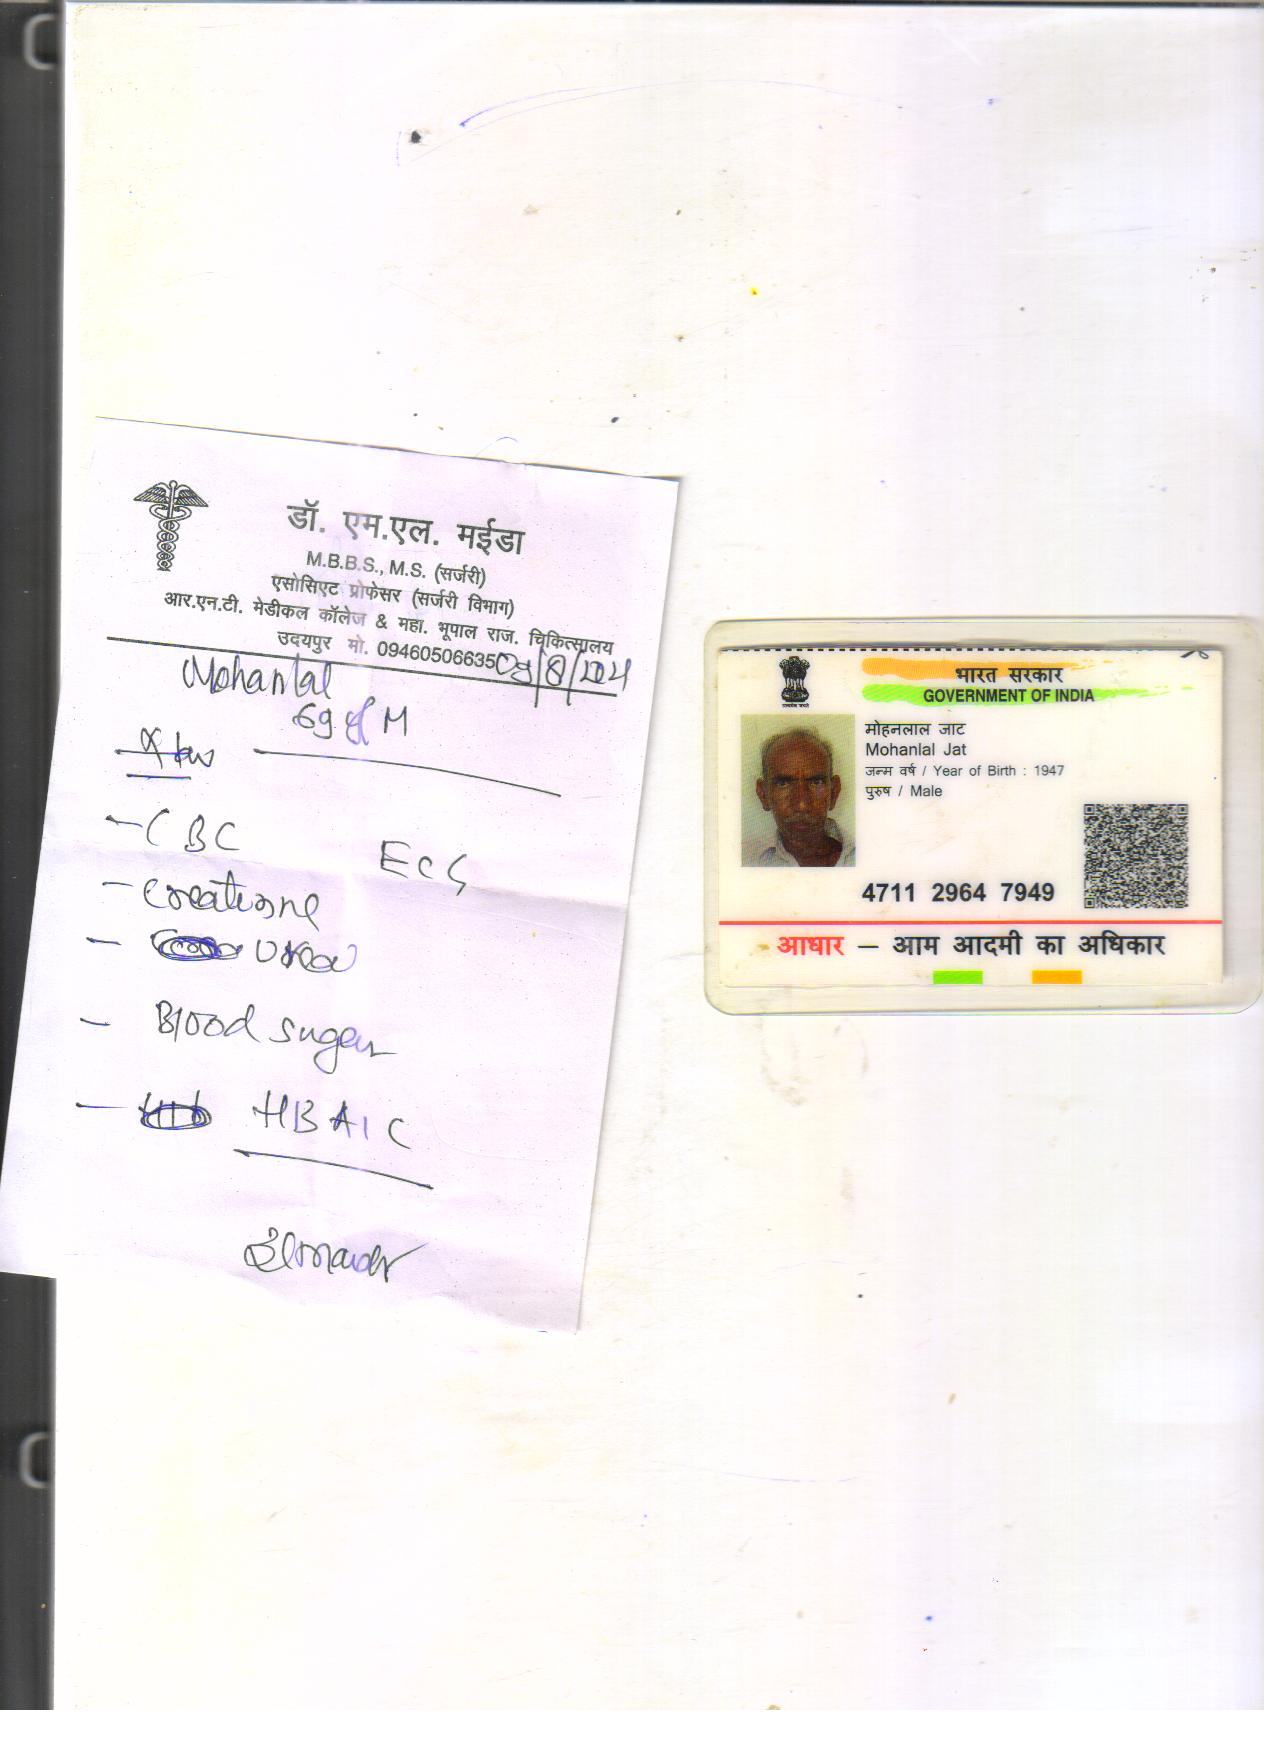 डॉ. एम.एल. मईडा
M.B.B.S., M.S. (सर्जरी)
एसोसिएट प्रोफेसर (सर्जरी विभाग)
आर.एन.टी. मेडीकल कॉलेज & महा. भूपाल राज. चिकित्सालय
उदयपुर मो. 09460506635
Mohanlal
69 M
- CBC
ECG
- Creatisne
- Urea
- Blood sugar
- HBA1C
भारत सरकार
GOVERNMENT OF INDIA
मोहनलाल जाट
Mohanlal Jat
जन्म वर्ष / Year of Birth : 1947
पुरुष / Male
4711 2964 7949
आधार – आम आदमी का अधिकार